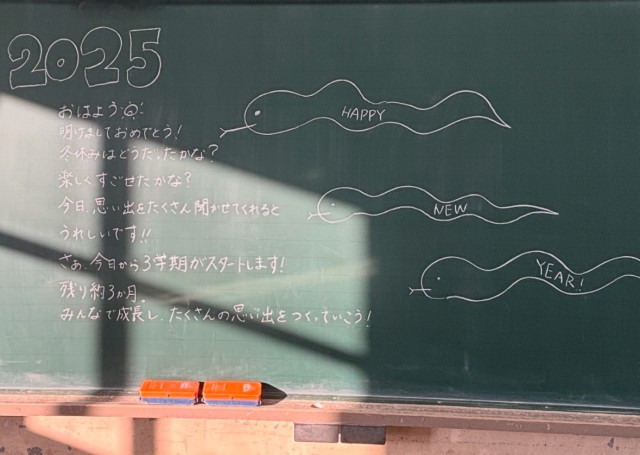 2025
おはよう
明けましておめでとう!
冬休みはどうだったかな?
楽しくすごせたかな?
今日、思い出をたくさん聞かせてくれると
うれしいです!!
さぁ、今日から3学期がスタートします!
残り約3か月。
みんなで成長し、たくさんの思い出をつくっていこう!
HAPPY
NEW
YEAR!